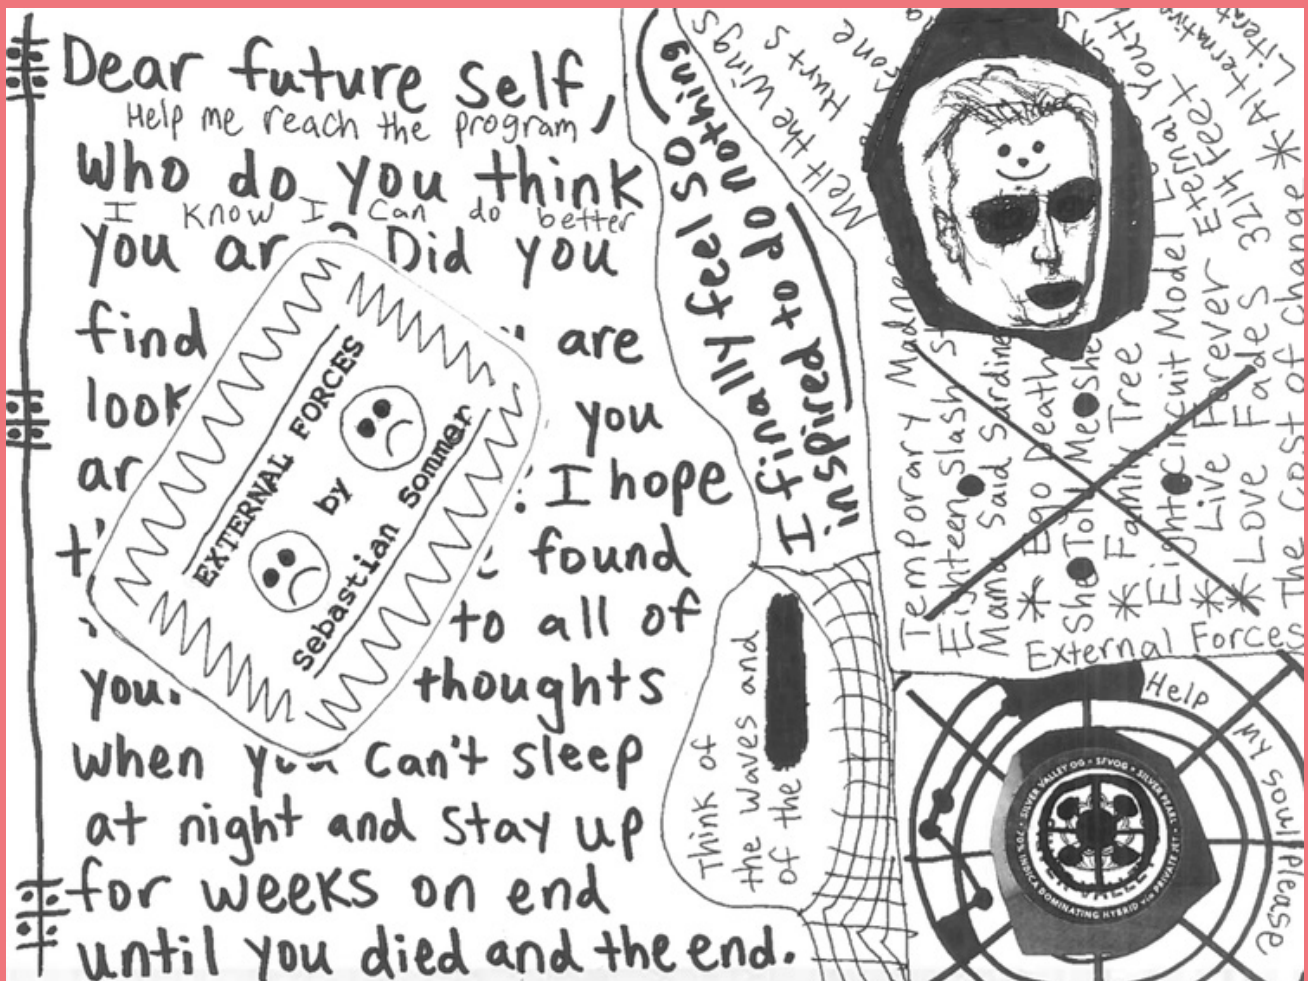 Dear future self,
Help me reach the program
who do you think
I know I can do better
you ar ? Did you
find are
look you
ar I hope
found
to all of
you. thoughts
when you can't sleep
at night and stay up
for weeks on end
until you died and the end.
EXTERNAL FORCES
by
Sebastian Sommer
I finally feel so
inspired to do nothing
Think of
the waves and
of the
Melt the wings
Hurts
Temporary Madnes
Eighteen Slash S
Mama Said Sardine
* Ego Death
She Told Me She
* Family Tree
Eight Circuit Model
* Live Forever Eternal Youth
* Love Fades 3214 Feet
The Cost of Change * Alternative
External Forces
Help my soul please
SILVER VALLEY OG • SFVOG • SILVER PEARL
INDICA DOMINATING HYBRID VIA PRIVATE JET